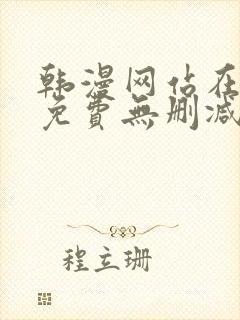 韩漫网佔在
免費無删减
程立珊